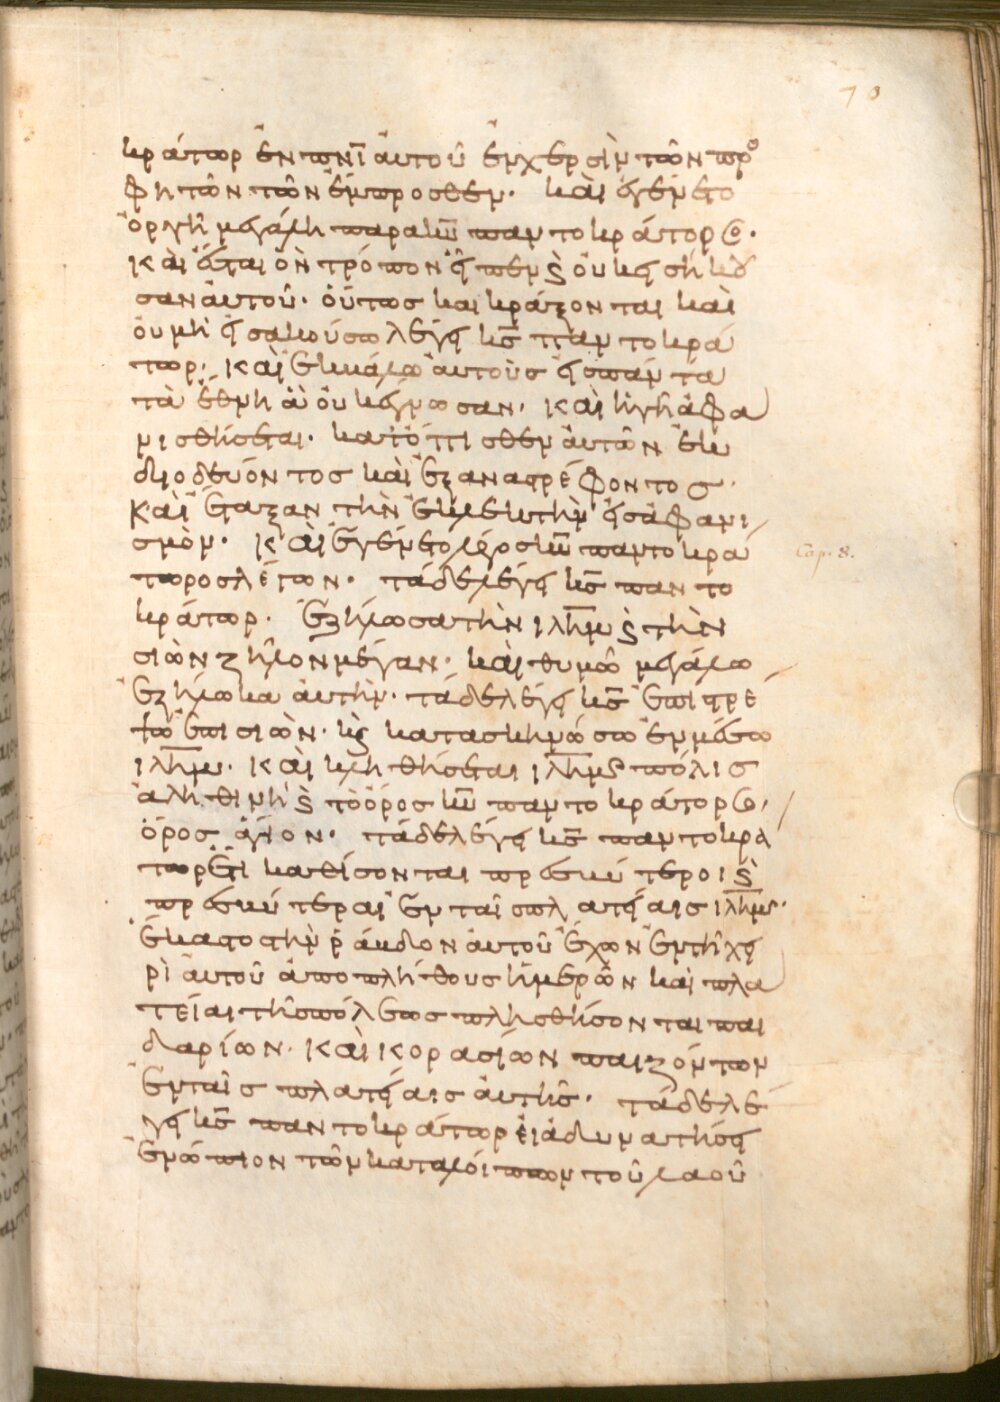 70
κράτωρ ἐν πνι αὐτοῦ ἐν χερσὶν τῶν προ
φητῶν τῶν ἔμπροσθεν· καὶ ἐγένετο
ὀργὴ μεγάλη παρα κυ παντοκράτορος·
καὶ ἔσται ὃν τρόπον εἶπεν ϗ οὐκ εἰσήκου
σαν αὐτοῦ· οὕτως και κράξονται καὶ
οὐ μὴ εἰσακούσω λέγει κς παντοκρά
τωρ· καὶ ἐκβάλω αὐτοὺσ εἰσ πάντα
τὰ ἔθνη ἃ οὐκ ἔγνωσαν· καὶ ἡ γῆ ἀφα
νισθήσεται· κατόπισθεν αὐτῶν ἐκ
διοδεύοντοσ καὶ ἐξ ἀναστρέφοντοσ·
καὶ ἔταξαν τὴν ἐκλεκτὴν εἰσ ἀφανι
σμόν· καὶ ἐγένετο λόγοσ κυ παντοκρά
τωροσ λέγων· τάδε λέγει κς παντο
κράτωρ· ἐζήλωσα τὴν ιλημ ϗ τὴν
σιὼν ζῆλον μέγαν· καὶ θυμῶ μεγάλω
ἐζήλωκα αὐτήν· τάδε λέγει κς ἐπιστρέ
ψω ἐπι σιὼν· κς κατασκηνώσω ἐν μέσω
ιλημ· καὶ κληθήσεται ιλημς πόλισ
ἀληθινὴ ϗ τὸ ὄροσ κυ παντοκράτορος·
ὄροσ ἅγιον· τάδε λέγει κς παντοκρα
τωρ ἔτι καθίσονται πρεσβύτεροι ϗ
πρεσβύτεραι ἐν ταῖσ πλατείαισ ιλημ·
ἕκαστοσ τὴν ῥάβδον αὐτοῦ ἔχων ἐν τῆ χει
ρὶ αὐτοῦ ἀπο πλήθουσ ἡμερῶν καὶ πλα
τεῖαι τῆσ πόλεωσ πλησθήσονται παι
δαρίων· καὶ κορασίων παιζόντων
ἐν ταῖσ πλατείαισ αὐτῆσ· τάδε λέ
γει κς παντοκράτωρ εἰ ἀδυνατήσει
ἐνώπιον τῶν καταλοίπων τοῦ λαοῦ
Cap. 8.